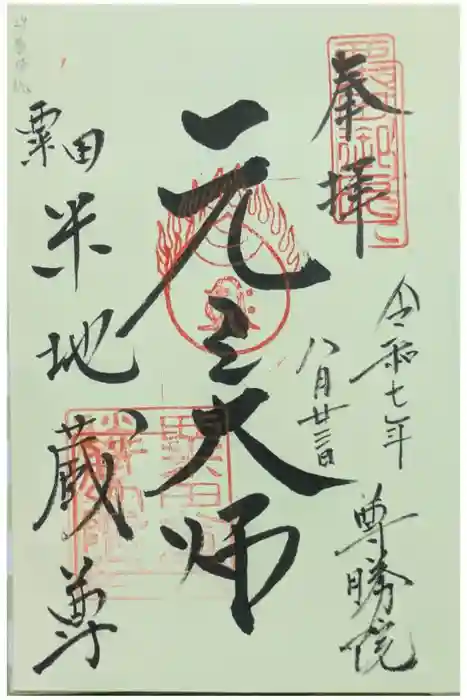 奉拝
令和七年
八月廿三日
元三大師
粟田
米地蔵尊
尊勝院